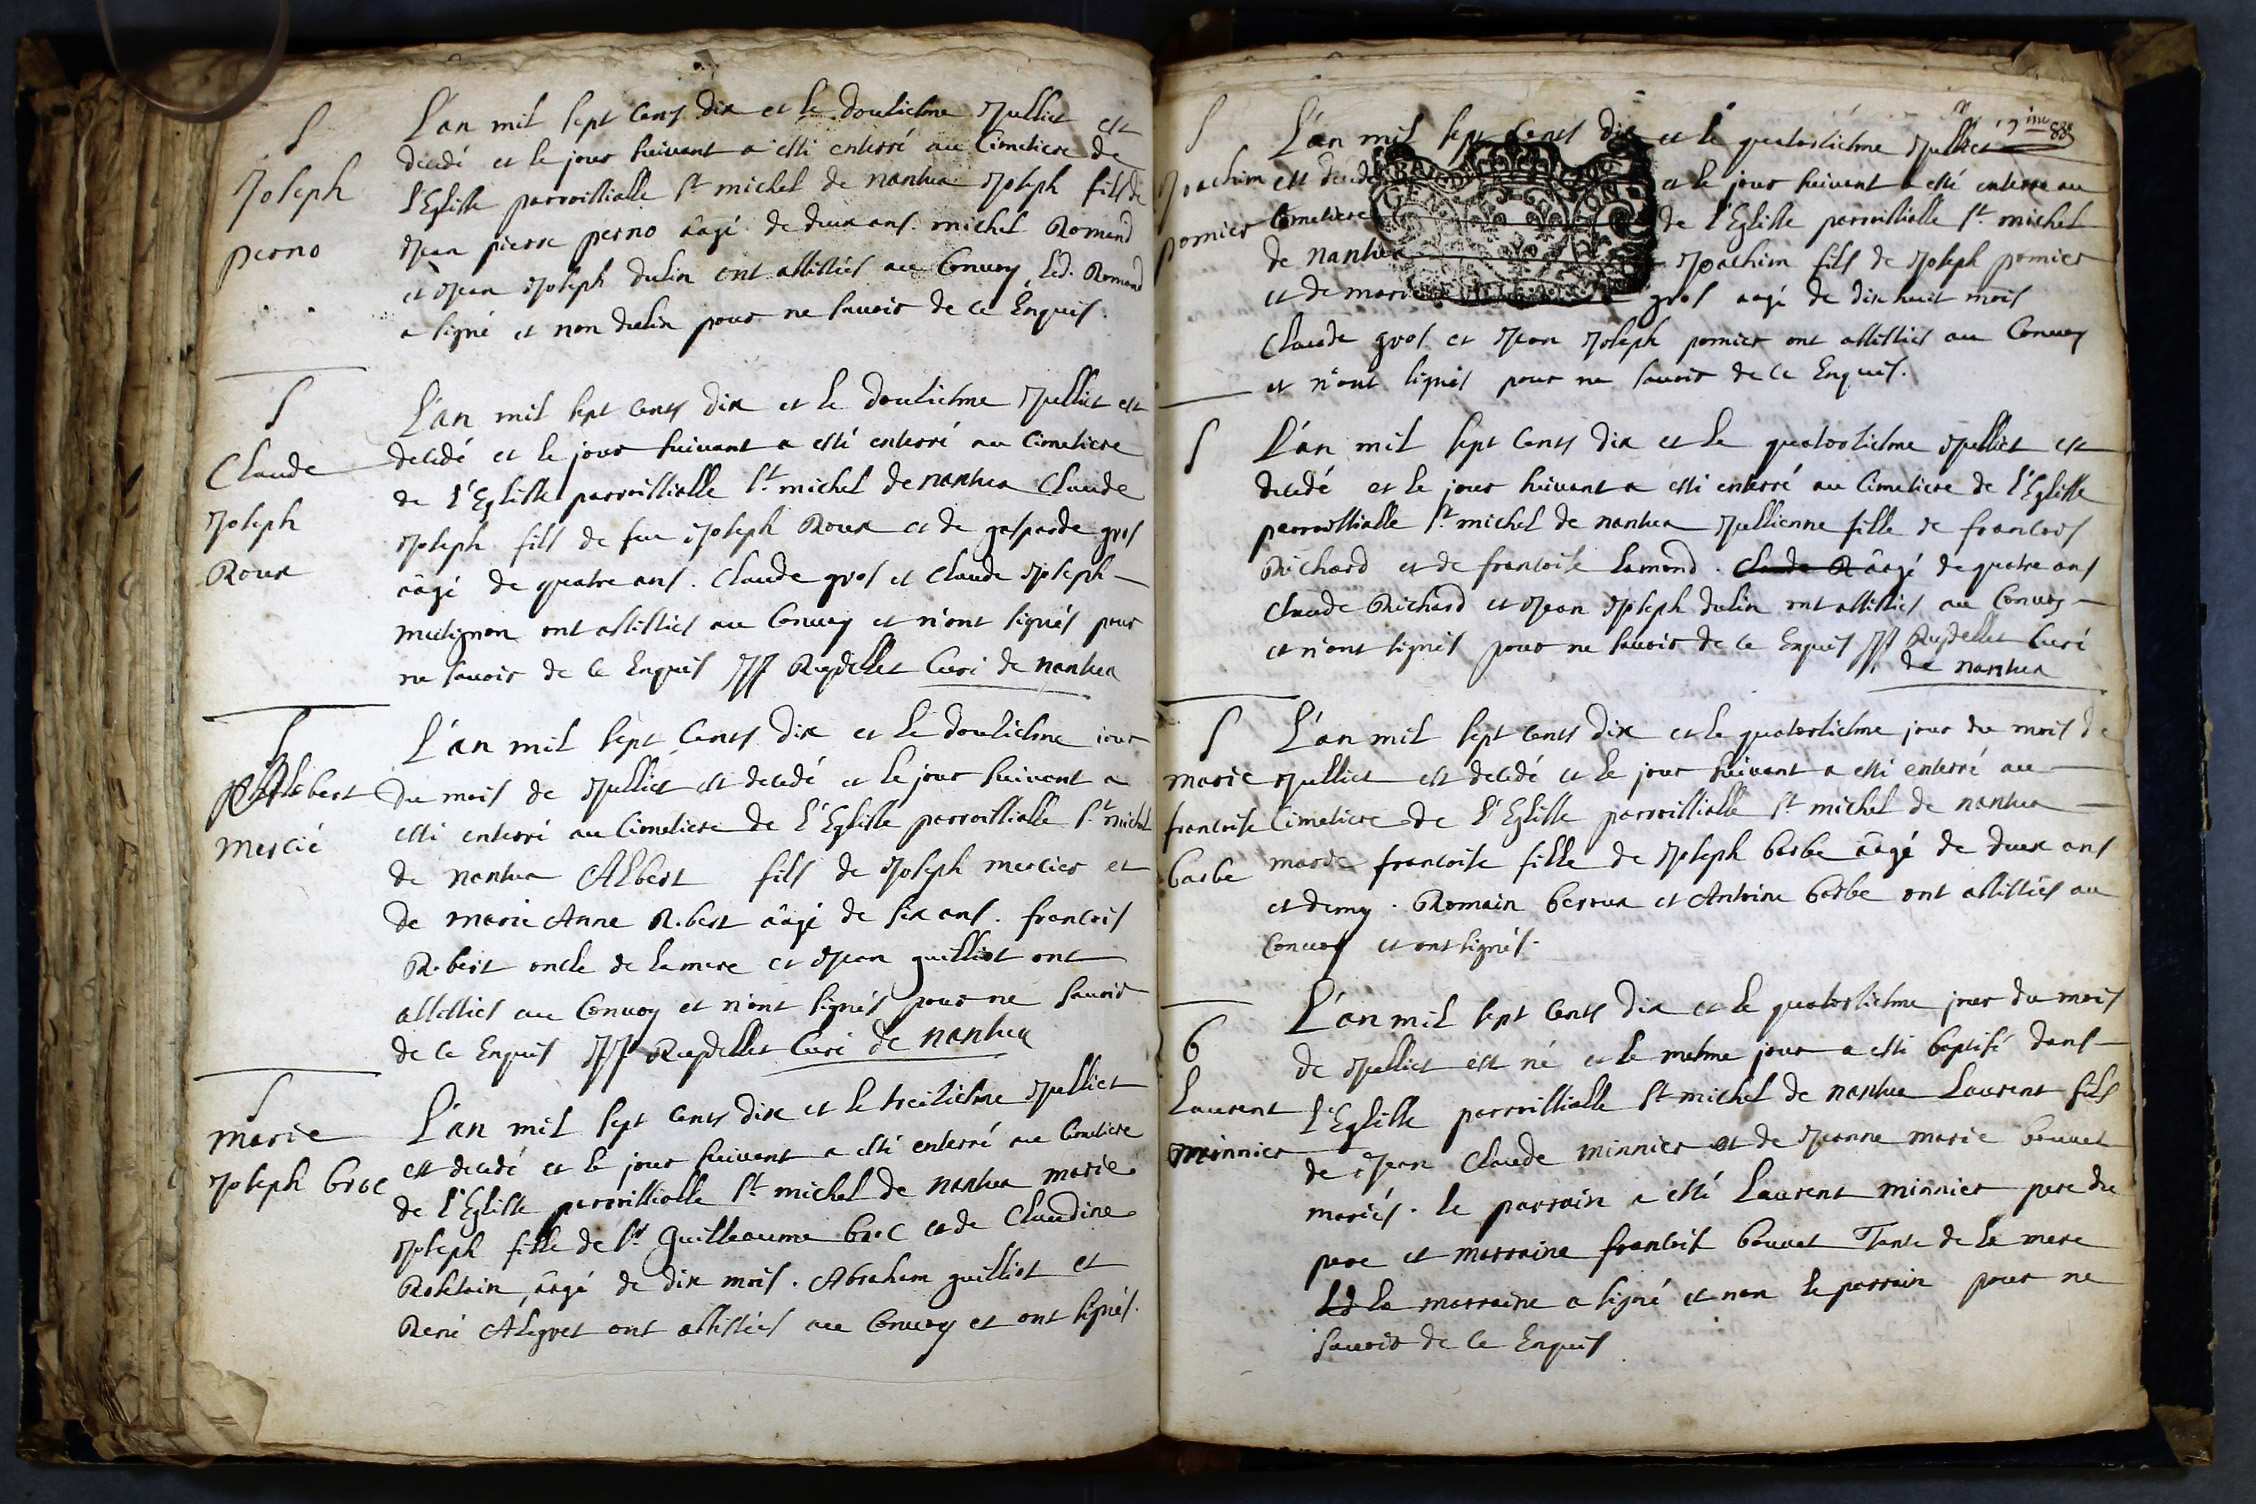 S
Joseph
perno
L'an mil sept cents dix et le douziesme Julliet est
decedé et le jour suivant a esté enterré au Cimetiere de
l'Eglisse parroissialle St michel de nantua Joseph fils de
Jean pierre perno âagé de deux ans. michel Romand
et Jean Joseph dulin ont assistés au Convoy led. Romand
a signé et non dulin pour ne savoir de ce Enquis.
S
Claude
Joseph
Roux
L'an mil sept cents dix et le douziesme Julliet est
decedé et le jour suivant a esté enterré au Cimetiere
de l'Eglisse parroissialle St michel de nantua Claude
Joseph fils de feu Joseph Roux et de gasparde gros
âagé de quatre ans. Claude gros et Claude Joseph
mutignon ont assistés au Convoy et n'ont signés pour
ne savoir de ce Enquis JJ Ruydellet Curé de nantua
S
Albert
Mercié
L'an mil sept Cents dix et le douziesme jour
du mois de Julliet est decedé et le jour suivant a
esté enterré au Cimetiere de l'Eglisse parroissialle St michel
de nantua Albert fils de Joseph mercier et
de marie Anne Robert âagé de six ans. francois
Robert oncle de la mere et Jean guilliot ont
assistés au Convoy et n'ont signés pour ne savoir
de ce Enquis JJ Ruydellet Curé de nantua
S
marie
Joseph broc
L'an mil sept cents dix et le treiziesme Julliet
est decedé et le jour suivant a esté enterré au Cimetiere
de l'Eglisse parroissialle St michel de nantua marie
Joseph fille de Sr Guilleaume broc et de Claudine
Rosselain, âagé de dix mois. Abraham guilliot et
René Alegret ont assistés au Convoy et ont signés.
S
Joachim
pomier
L'an mil sept Cents dix et le quatorziesme Julliet
est decedé et le jour suivant a esté enterré au
Cimetiere de l'Eglisse parroissialle St michel
de nantua Joachim fils de Joseph pomier
et de marie gros aagé de dix huit mois
Claude gros et Jean Joseph pomier ont assistés au Convoy
et n'ont signés pour ne savoir de ce Enquis.
S
L'an mil sept Cents dix et le quatorziesme Julliet est
decedé et le jour suivant a esté enterré au Cimetiere de l'Eglisse
parroissialle St michel de nantua Jullienne fille de francois
Richard et de francoise lamond. Claude R âagé de quatre ans
claude Richard et Jean Joseph dulin ont assistés au Convoy
et n'ont signés pour ne savoir de ce Enquis JJ Ruydellet Curé
de nantua
S
marie
francoise
barbe
L'an mil sept cents dix et le quatorziesme jour du mois de
Julliet est decedé et le jour suivant a esté enterré au
Cimetiere de l'Eglisse parroissialle St michel de nantua
marie francoise fille de Joseph barbe âagé de deux ans
et demy. Romain beroux et Antoine barbe ont assistés au
Convoy et ont signés.
b
Laurent
minnier
L'an mil sept Cents dix et le quatorziesme jour du mois
de Julliet est né et le mesme jour a esté baptisé dans
l'Eglisse parroissialle St michel de nantua Laurent fils
de Jean Claude minnier et de Jeanne marie bouvet
mariés. le parrain a esté Laurent minnier pere du
pere et marraine francoise bouvet Tante de la mere
Ld la marraine a signé et non le parrain pour ne
savoir de ce Enquis